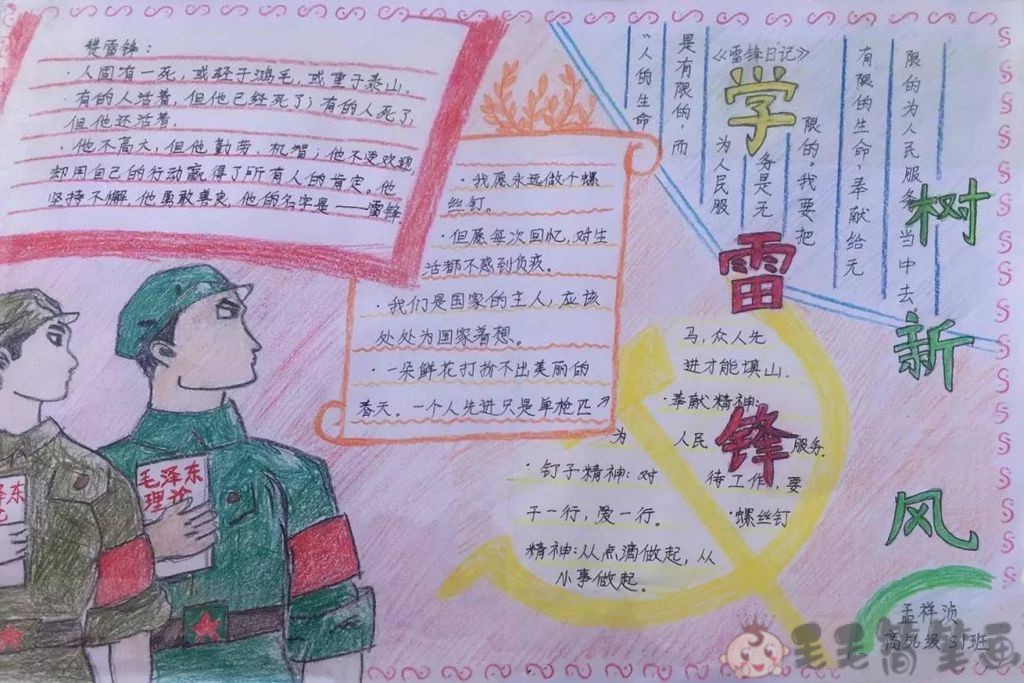 赞雷锋：
·人固有一死，或轻于鸿毛，或重于泰山。
·有的人活着，但他已经死了；有的人死了，
但他还活着.
·他不高大，但他勤劳、机智；他不受欢迎，
却用自己的行动赢得了所有人的肯定。他
坚持不懈，他勇敢善良，他的名字是——雷锋.
·我愿永远做个螺
丝钉。
·但愿每次回忆，对生
活都不感到负疚。
·我们是国家的主人，应该
处处为国家着想。
·一朵鲜花打扮不出美丽的
春天。一个人先进只是单枪匹
马，众人先
进才能填山.
《雷锋日记》
“人的生命
是有限的，而
为人民服
务是无
限的。我要把
有限的生命，奉献给无
限的为人民服务当中去
学
雷
锋
树
新
风
·奉献精神：
为人民服务.
·钉子精神：对
待工作，要
干一行，爱一行。
·螺丝钉
精神：从点滴做起，从
小事做起.
毛泽东
理论
泽东
孟祥浈
高56级51班
毛毛简笔画